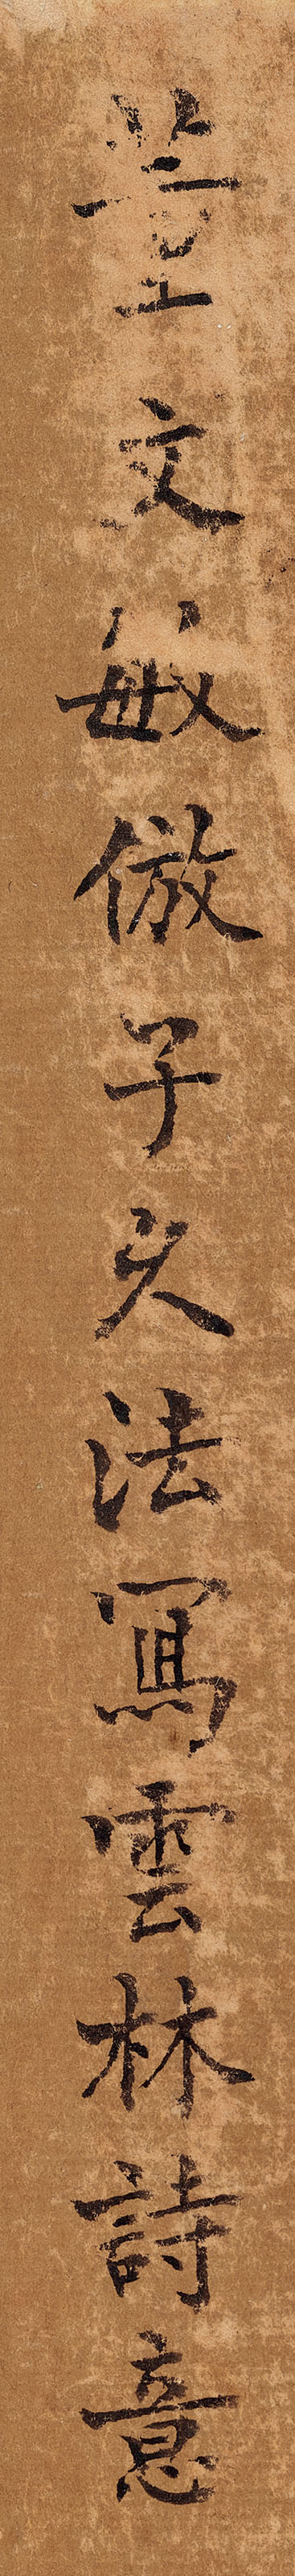 董文敏倣子久法寫雲林詩意